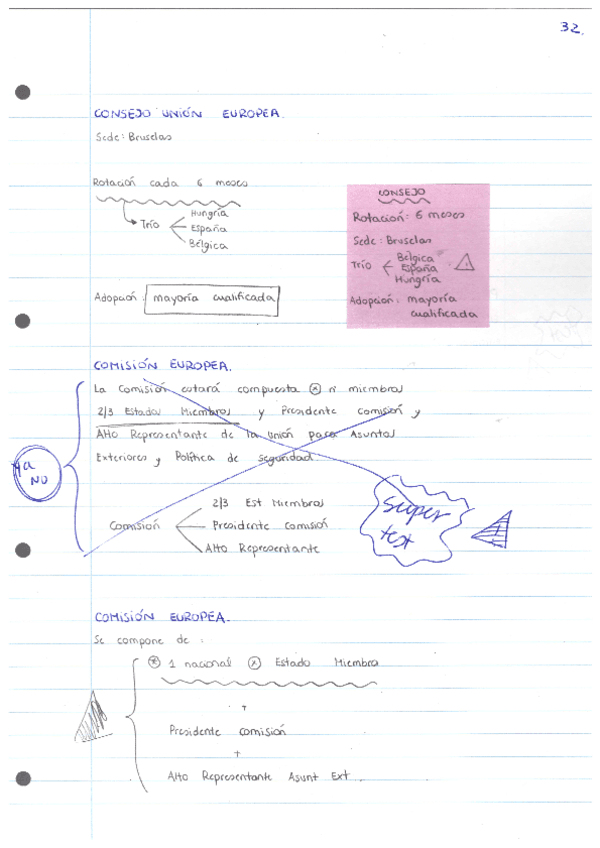 32.
CONSEJO UNIÓN EUROPEA.
Sede: Bruselas
Rotación cada 6 meses
Trío
Hungría
España
Bélgica
Adopción: mayoría cualificada
CONSEJO
Rotación: 6 meses
Sede: Bruselas
Trío
Bélgica
España
Hungría
Adopción: mayoría
cualificada
COMISIÓN EUROPEA.
La Comisión estará compuesta x n miembros
2/3 Estados Miembros y Presidente comisión y
Alto Representante de la Unión para Asuntos
Exteriores y Política de Seguridad.
ya
NO
Comisión
2/3 Est Miembros
Presidente Comisión
Alto Representante
Super
test
COMISIÓN EUROPEA.
Se compone de:
* 1 nacional x Estado Miembro
+
Presidente comisión
+
Alto Representante Asunt Ext.